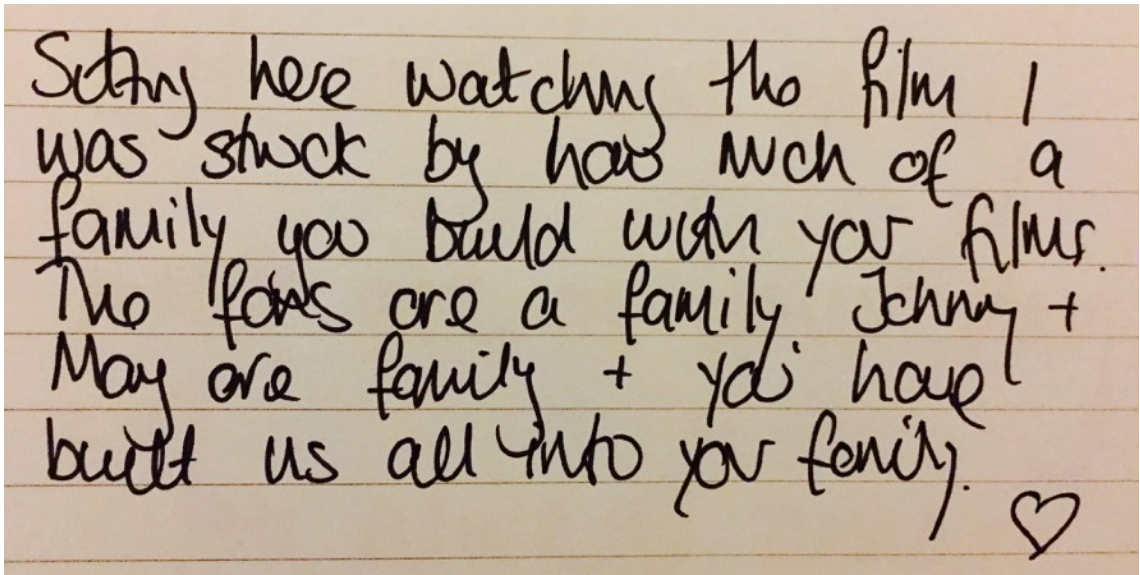 Sitting here watching the film I
was struck by how much of a
family you build with your films.
The are a family Johnny +
May are family + you have
built us all into your family.
♡